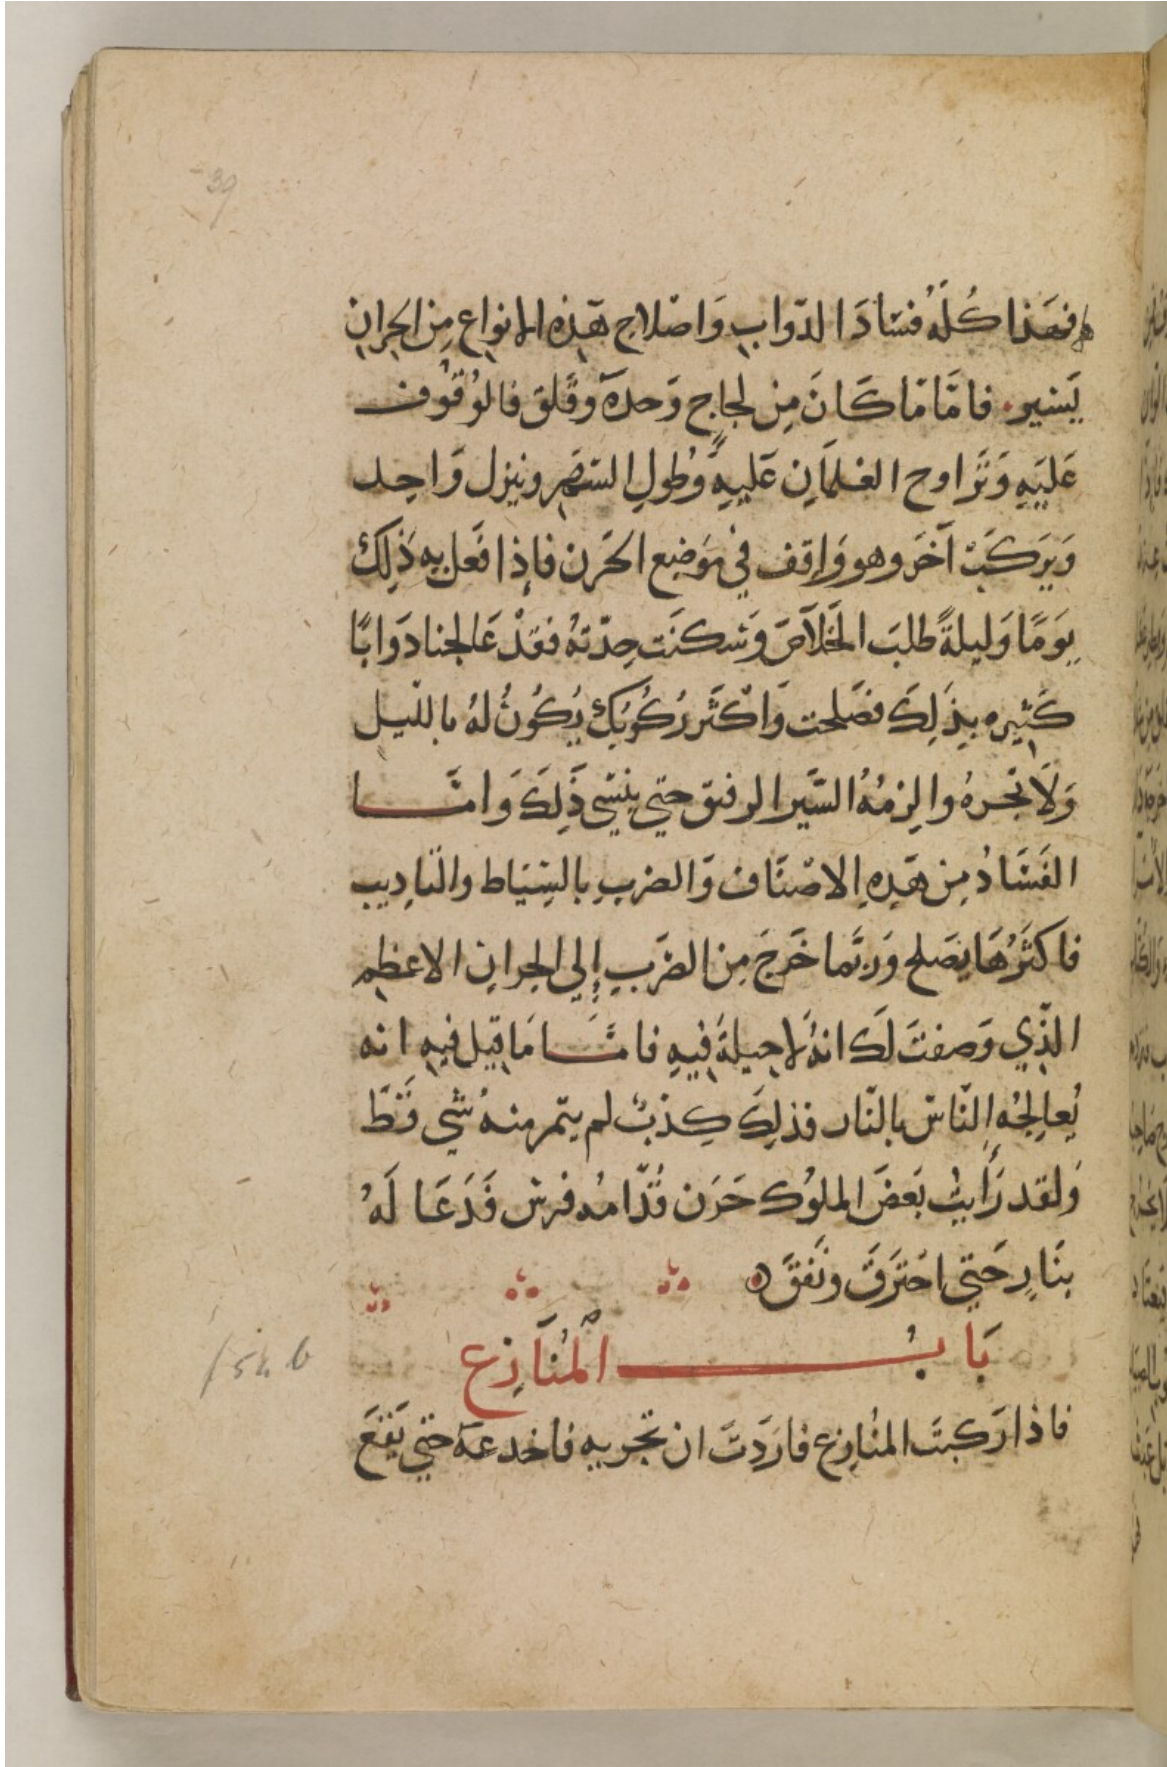 39
فهَذا كُلّهُ فسَادَ الدّوابِ وَاصْلاح هَذِه الانواع مِن الحِران
يَسير فامّا مَا كَانَ مِن لجاجٍ وَحدةٍ وقَلق فالوُقُوف
عَليَهِ وَتَراوح الغلمَانِ عَليهِ وَطُولِ السّهَر وينزل وَاحِد
وَيَركَبْ آخَر وهو وَاقف في مَوضِع الحَرن فإذا فَعل به ذَلِك
يوَمًا وَليلةً طلبَ الخَلاصَ وَسَكنَت حِدّتهُ فقدْ عَالجنا دَوابًا
كَثِيره بِذَلِكَ فصَلحت وَاكثَر رُكُوبَك يَكُونُ لهُ بالليل
وَلَا تجره والزِمُهُ السَّير الرفيق حتي ينسَي ذَلِكَ وَامّا
الفَسَادُ مِن هَذِهِ الاصْنَاف وَالضربِ بالسِّيَاط والتّادِيب
فاكثَرُهَا يصَلح وَربّما خَرجَ مِن الضَربِ إلي الحِران الاعظم
الّذِي وَصفتَ لَكَ انهُ لاحِيلةَ فِيهِ فامّا مَا قيل فيهِ انه
يُعالِجُه النّاسْ بالنّار فذلِكَ كِذبٌ لم يتمر منهُ شي قَطّ
وَلقد رَأيتُ بَعضَ الملوُك حَرَن قُدّامهُ فرسْ فَدَعَا لَهُ
بنَارٍ حَتي احْترَقَ ونَفقَ
بَابُ المُنَازِع
فاذا رَكبتَ المُنازِع فارَدَتَ ان تجريهِ فاخدعهُ حتي يَقَعَ